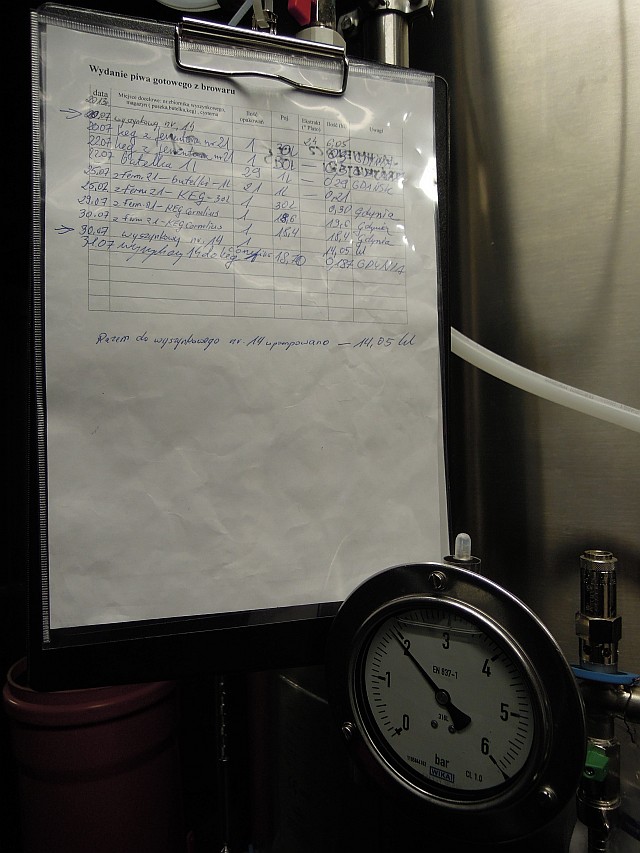 Wydanie piwa gotowego z browaru
data Miejsce docelowe: nr zbiornika wyszynkowego, Ilość Poj. Ekstrakt Ilość Uwagi
magazyn opakowań (° Plato)
2013
20.07 wyszynkowy nr. 14
20.07 keg z fermentora nr 21 1 30L
22.07 keg z fermentora nr 21 1 30L
22.07 Butelka 1L 29 1L — 0,29 GDAŃSK
25.07 z ferm. 21 - butelki - 1L 21 1L — 0,21
25.07 z ferm 21 - KEG - 30L 1 30L 0,30 gdynia
29.07 z ferm. 21 - KEG Cornelius 1 19,6 gdynia
30.07 z ferm. 21 - KEG Cornelius 1 18,4 18,4 gdynia
30.07 wyszynkowy nr. 14 1 14,05 hl
31.07 wyszynkowy 14 do keg 18,70 0,187 GDYNIA
Razem do wyszynkowego nr. 14 upompowano — 14,05 hl
0 1 2 3 4 5 6
EN 837-1
316L
bar
WIKA
Cl. 1.0